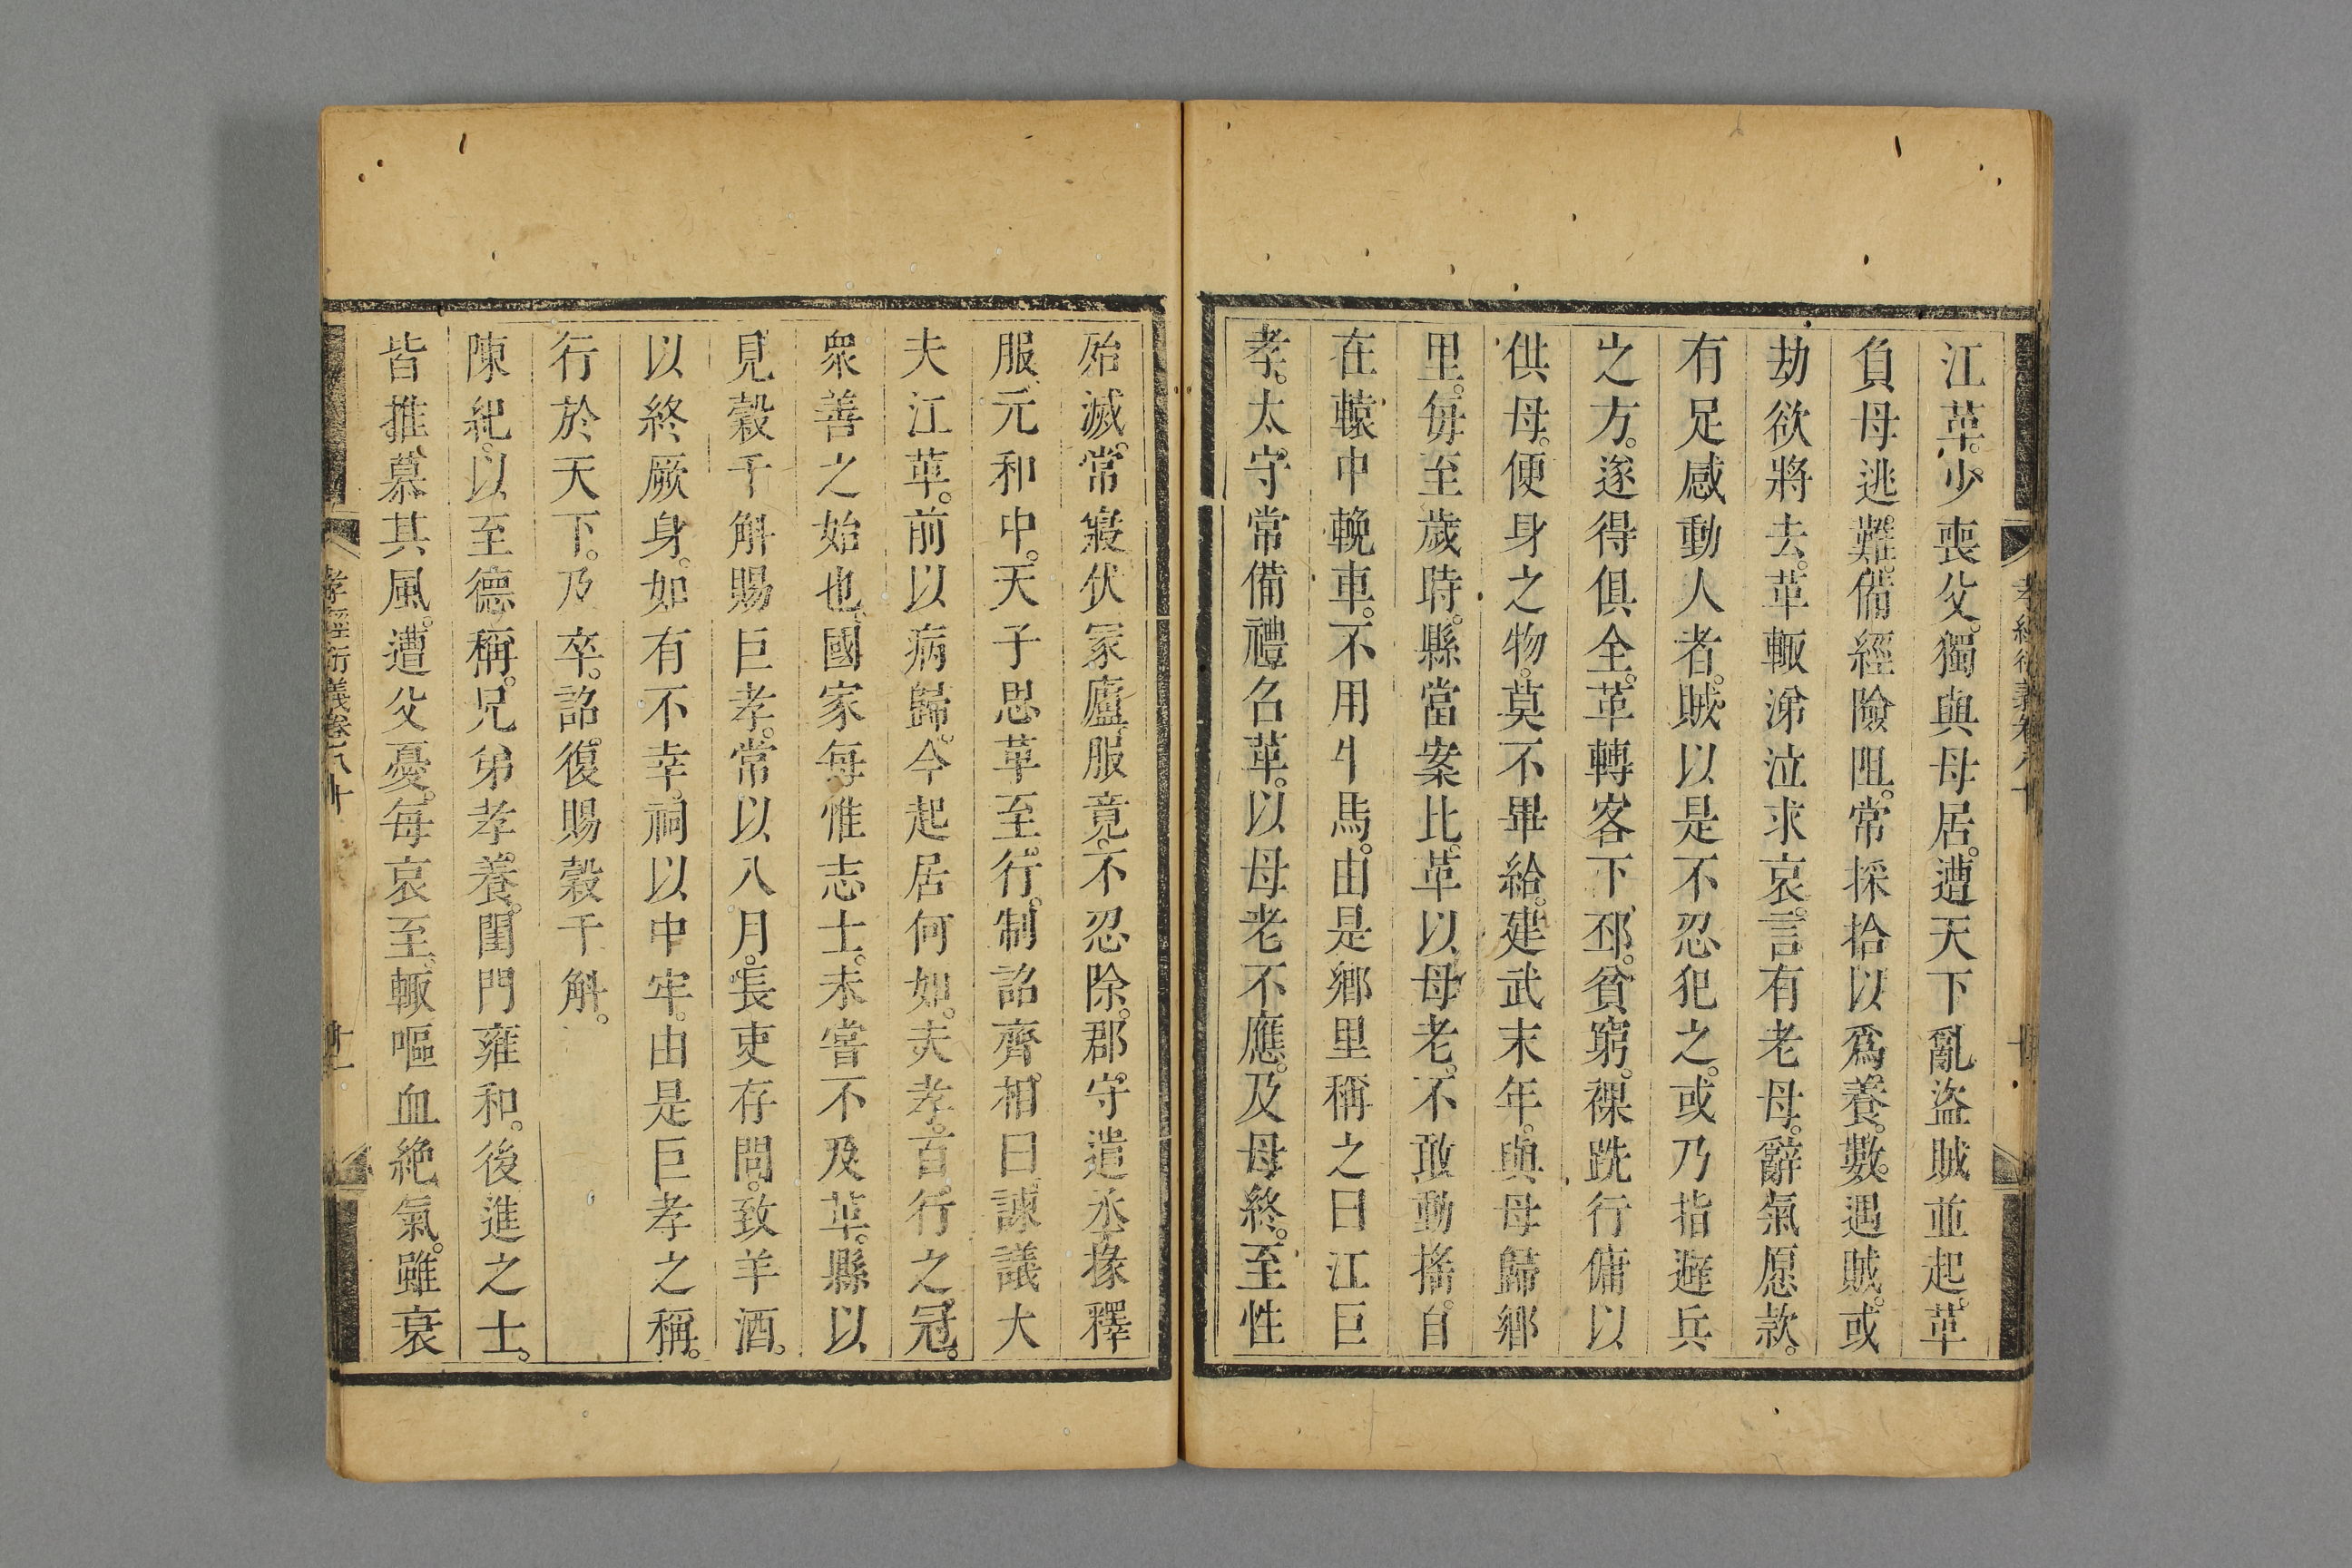 江革。少喪父。獨與母居。遭天下亂盜賊並起。革
負母逃難。備經險阻。常採拾以爲養。數遇賊。或
劫欲將去。革輒涕泣求哀。言有老母。辭氣愿款。
有足感動人者。賊以是不忍犯之。或乃指避兵
之方。遂得俱全。革轉客下邳。貧窮。裸跣行傭以
供母。便身之物。莫不畢給。建武末年。與母歸鄉
里。每至歲時。縣當案比。革以母老。不敢動搖。自
在轅中輓車。不用牛馬。由是鄉里稱之曰江巨
孝。太守常備禮名革。以母老不應。及母終。至性
殆滅。常寢伏冢廬。服竟。不忍除。郡守遣丞掾釋
服。元和中。天子思革至行。制詔齊相曰。諫議大
夫江革。前以病歸。今起居何如。夫孝。百行之冠。
衆善之始也。國家每惟志士。未嘗不及革。縣以
見穀千斛賜巨孝。常以八月。長吏存問。致羊酒。
以終厥身。如有不幸。祠以中牢。由是巨孝之稱。
行於天下。乃卒。詔復賜穀千斛。
陳紀。以至德稱。兄弟孝養。閨門雍和。後進之士。
皆推慕其風。遭父憂。每哀至。輒嘔血絶氣。雖衰
孝經衍義卷八十
十一